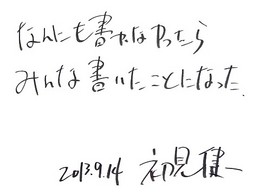 なんにも書かなかったら
みんな書いたことになった
2013.9.14 初見健一